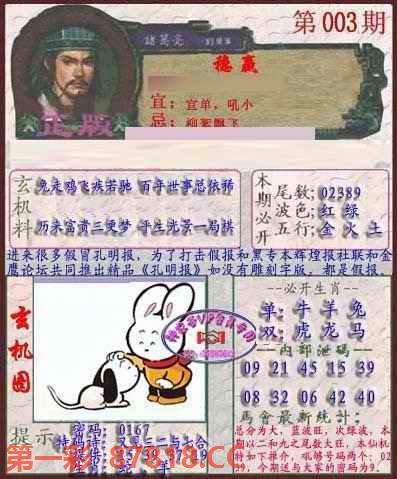 第003期
諸葛亮
稳赢
宜:宜单,吼小
忌:柳絮飘飞
正版
玄机料
兔走鸡飞疾若驰 百年世事总依稀
历来富贵三更梦 平生光景一局棋
本期必开
尾数: 02389
波色: 红 绿
五行: 金 火 土
进来很多假冒孔明报,为了打击假报和黑专本辉煌报社联和金
鹰论坛共同推出精品《孔明报》如没有雕刻字版,都是假报。
玄机图
--必开生肖--
单: 牛 羊 兔
双: 虎 龙 马
内部泄码
09 21 45 15 39
08 32 06 42 40
馬會最新統計:
总分为大,蓝波旺,次绿波,本
期以二和九之尾数大旺,本仙机
特如下操作,吼够号码两个:02
09,今期送与大家的密码为9.
提示
密码: 0167
特码诗: 又见三二与七合
第一彩 87818.CC